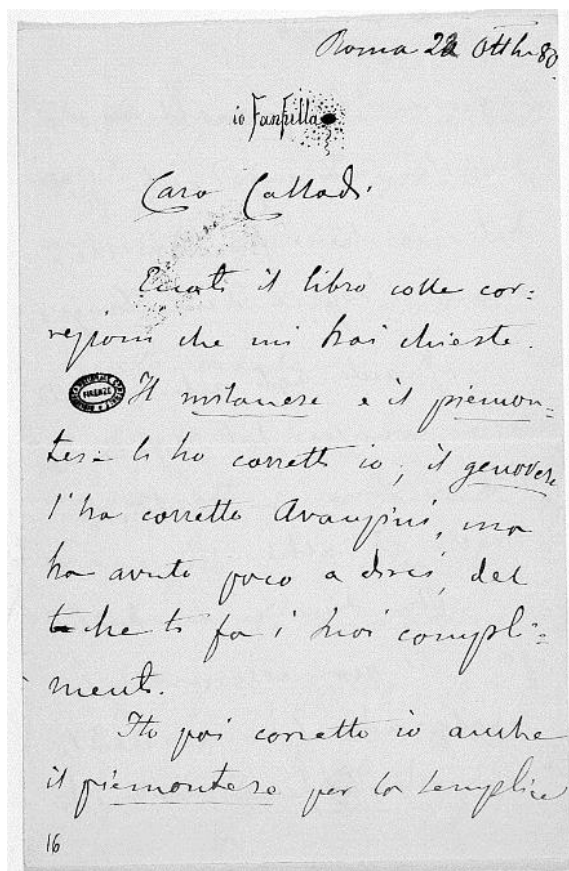 Roma 22 Ottbr 80.
io Fanfulla
Caro Collodi.
Eccoti il libro colle cor=
rezioni che mi hai chieste.
FIRENZE
Il milanese e il piemon=
tese li ho corretti io; il genovese
l'ha corretto Avanzini, ma
ha avuto poco a dirci, del
che ti fa i suoi compli=
menti.
Ho poi corretto io anche
il piemontese per la semplice
16